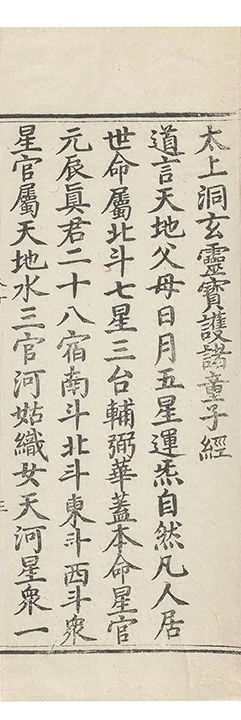 太上洞玄靈寶護諸童子經
道言天地父母日月五星運炁自然凡人居
世命屬北斗七星三台輔弼華蓋本命星官
元辰眞君二十八宿南斗北斗東斗西斗衆
星官屬天地水三官河姑織女天河星衆一